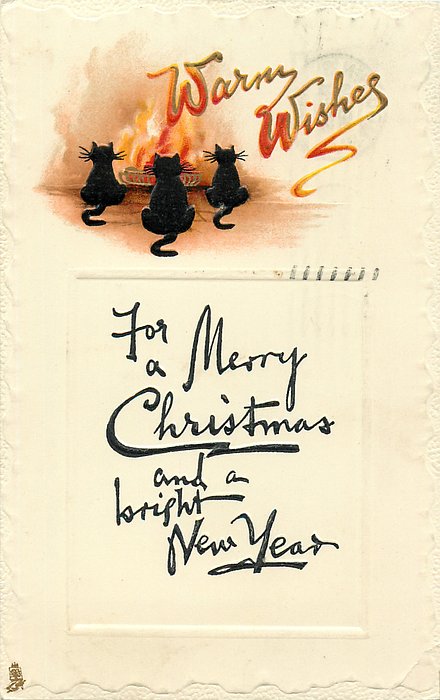 Warm
Wishes
For
a Merry
Christmas
and a
bright
New Year